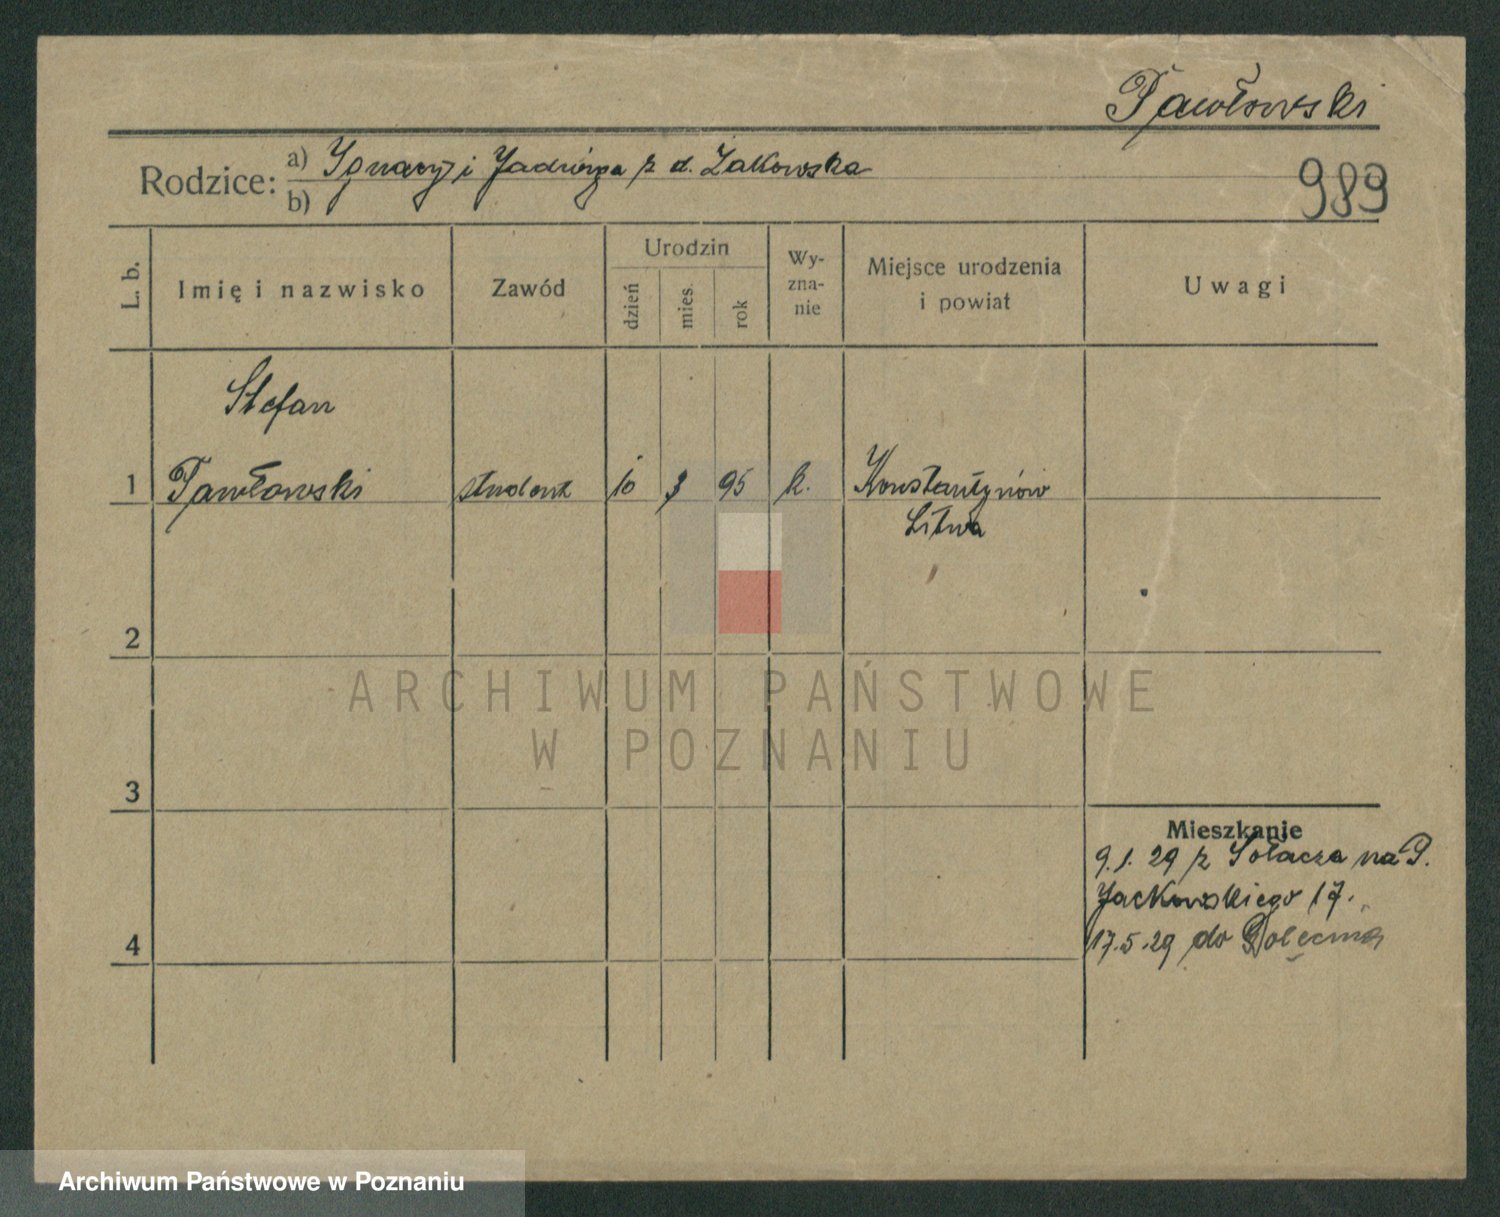 Pawłowski
Rodzice: a) Ignacy i Jadwiga z d. Żakowska
b)
989
L. b.
Imię i nazwisko
Zawód
Urodzin
dzień
mies.
rok
Wy-
zna-
nie
Miejsce urodzenia
i powiat
Uwagi
Stefan
1 Pawłowski student 10 3 95 k. Konstantynów
Litwa
2
3
4
Mieszkanie
9.1.29 z Sołacza na P.
Jackowskiego 17.
17.5.29 do Golęcina
ARCHIWUM PAŃSTWOWE
W POZNANIU
Archiwum Państwowe w Poznaniu